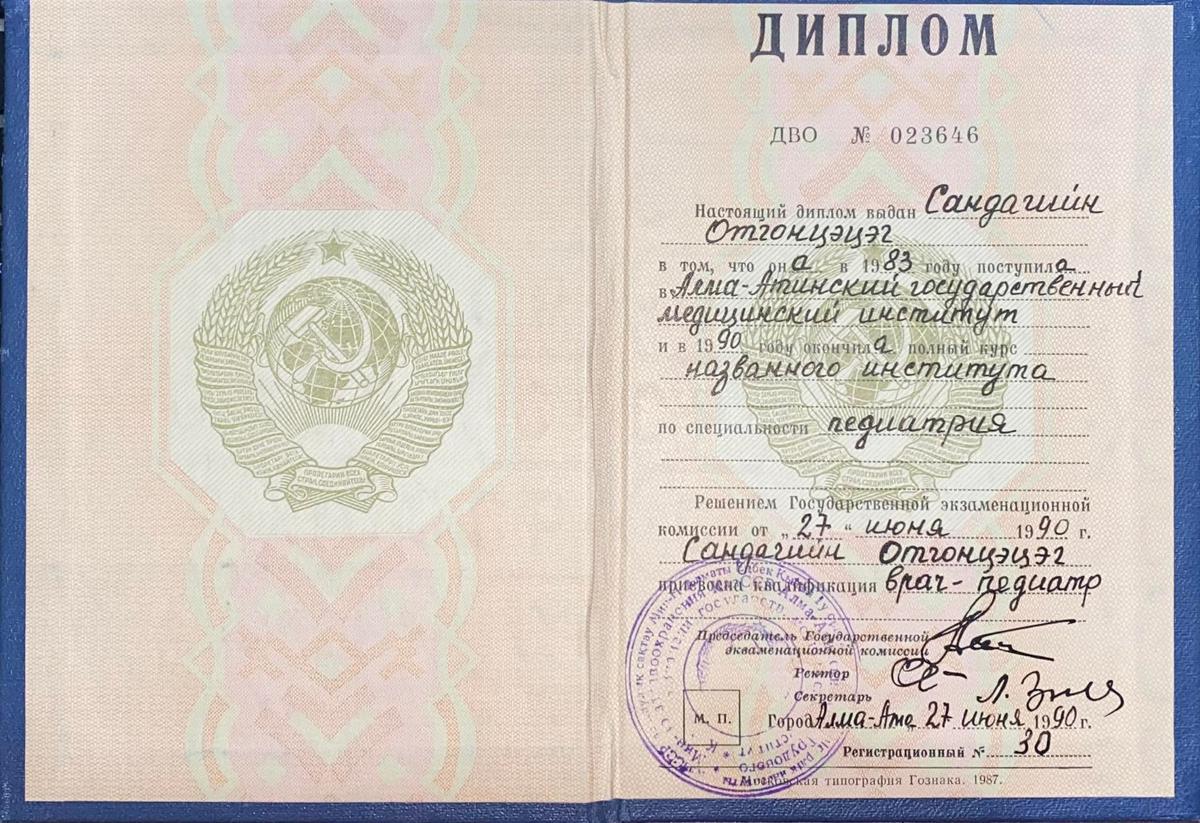 ПРОЛЕТАРИИ ВСЕХ
СТРАН, СОЕДИНЯЙТЕСЬ!
ДИПЛОМ
ДВО № 023646
Настоящий диплом выдан Сандагийн
Отгонцэцэг
в том, что она в 1983 году поступила
в Алма-Атинский государственный
медицинский институт
и в 1990 году окончила полный курс
названного института
по специальности педиатрия
Решением Государственной экзаменационной
комиссии от „27“ июня 1990 г.
Сандагийн Отгонцэцэг
присвоена квалификация врач-педиатр
Председатель Государственной
экзаменационной комиссии
Ректор
Секретарь
М. П.
Город Алма-Ата 27 июня 1990 г.
Регистрационный № 30
Московская типография Гознака. 1987.